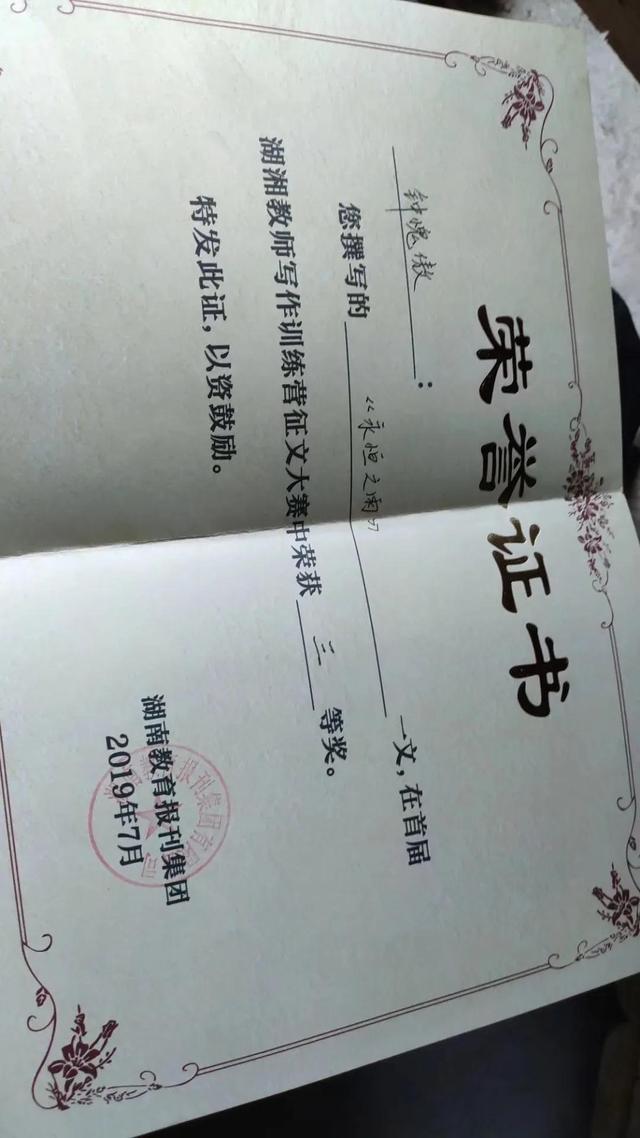 荣誉证书
钟愧傲：
您撰写的《永恒之雨》一文，在首届
湖湘教师写作训练营征文大赛中荣获三等奖。
特发此证，以资鼓励。
湖南教育报刊集团
2019年7月